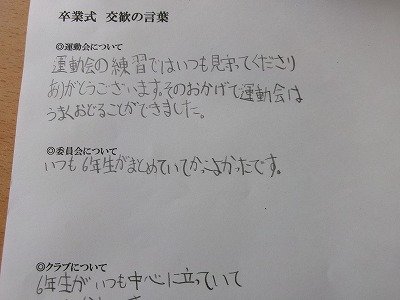 卒業式 交歓の言葉
◎運動会について
運動会の練習ではいつも見守ってくださり
ありがとうございます。そのおかげで運動会は
うまくおどることができました。
◎委員会について
いつも6年生がまとめていてかっこよかったです。
◎クラブについて
6年生がいつも中心に立っていて